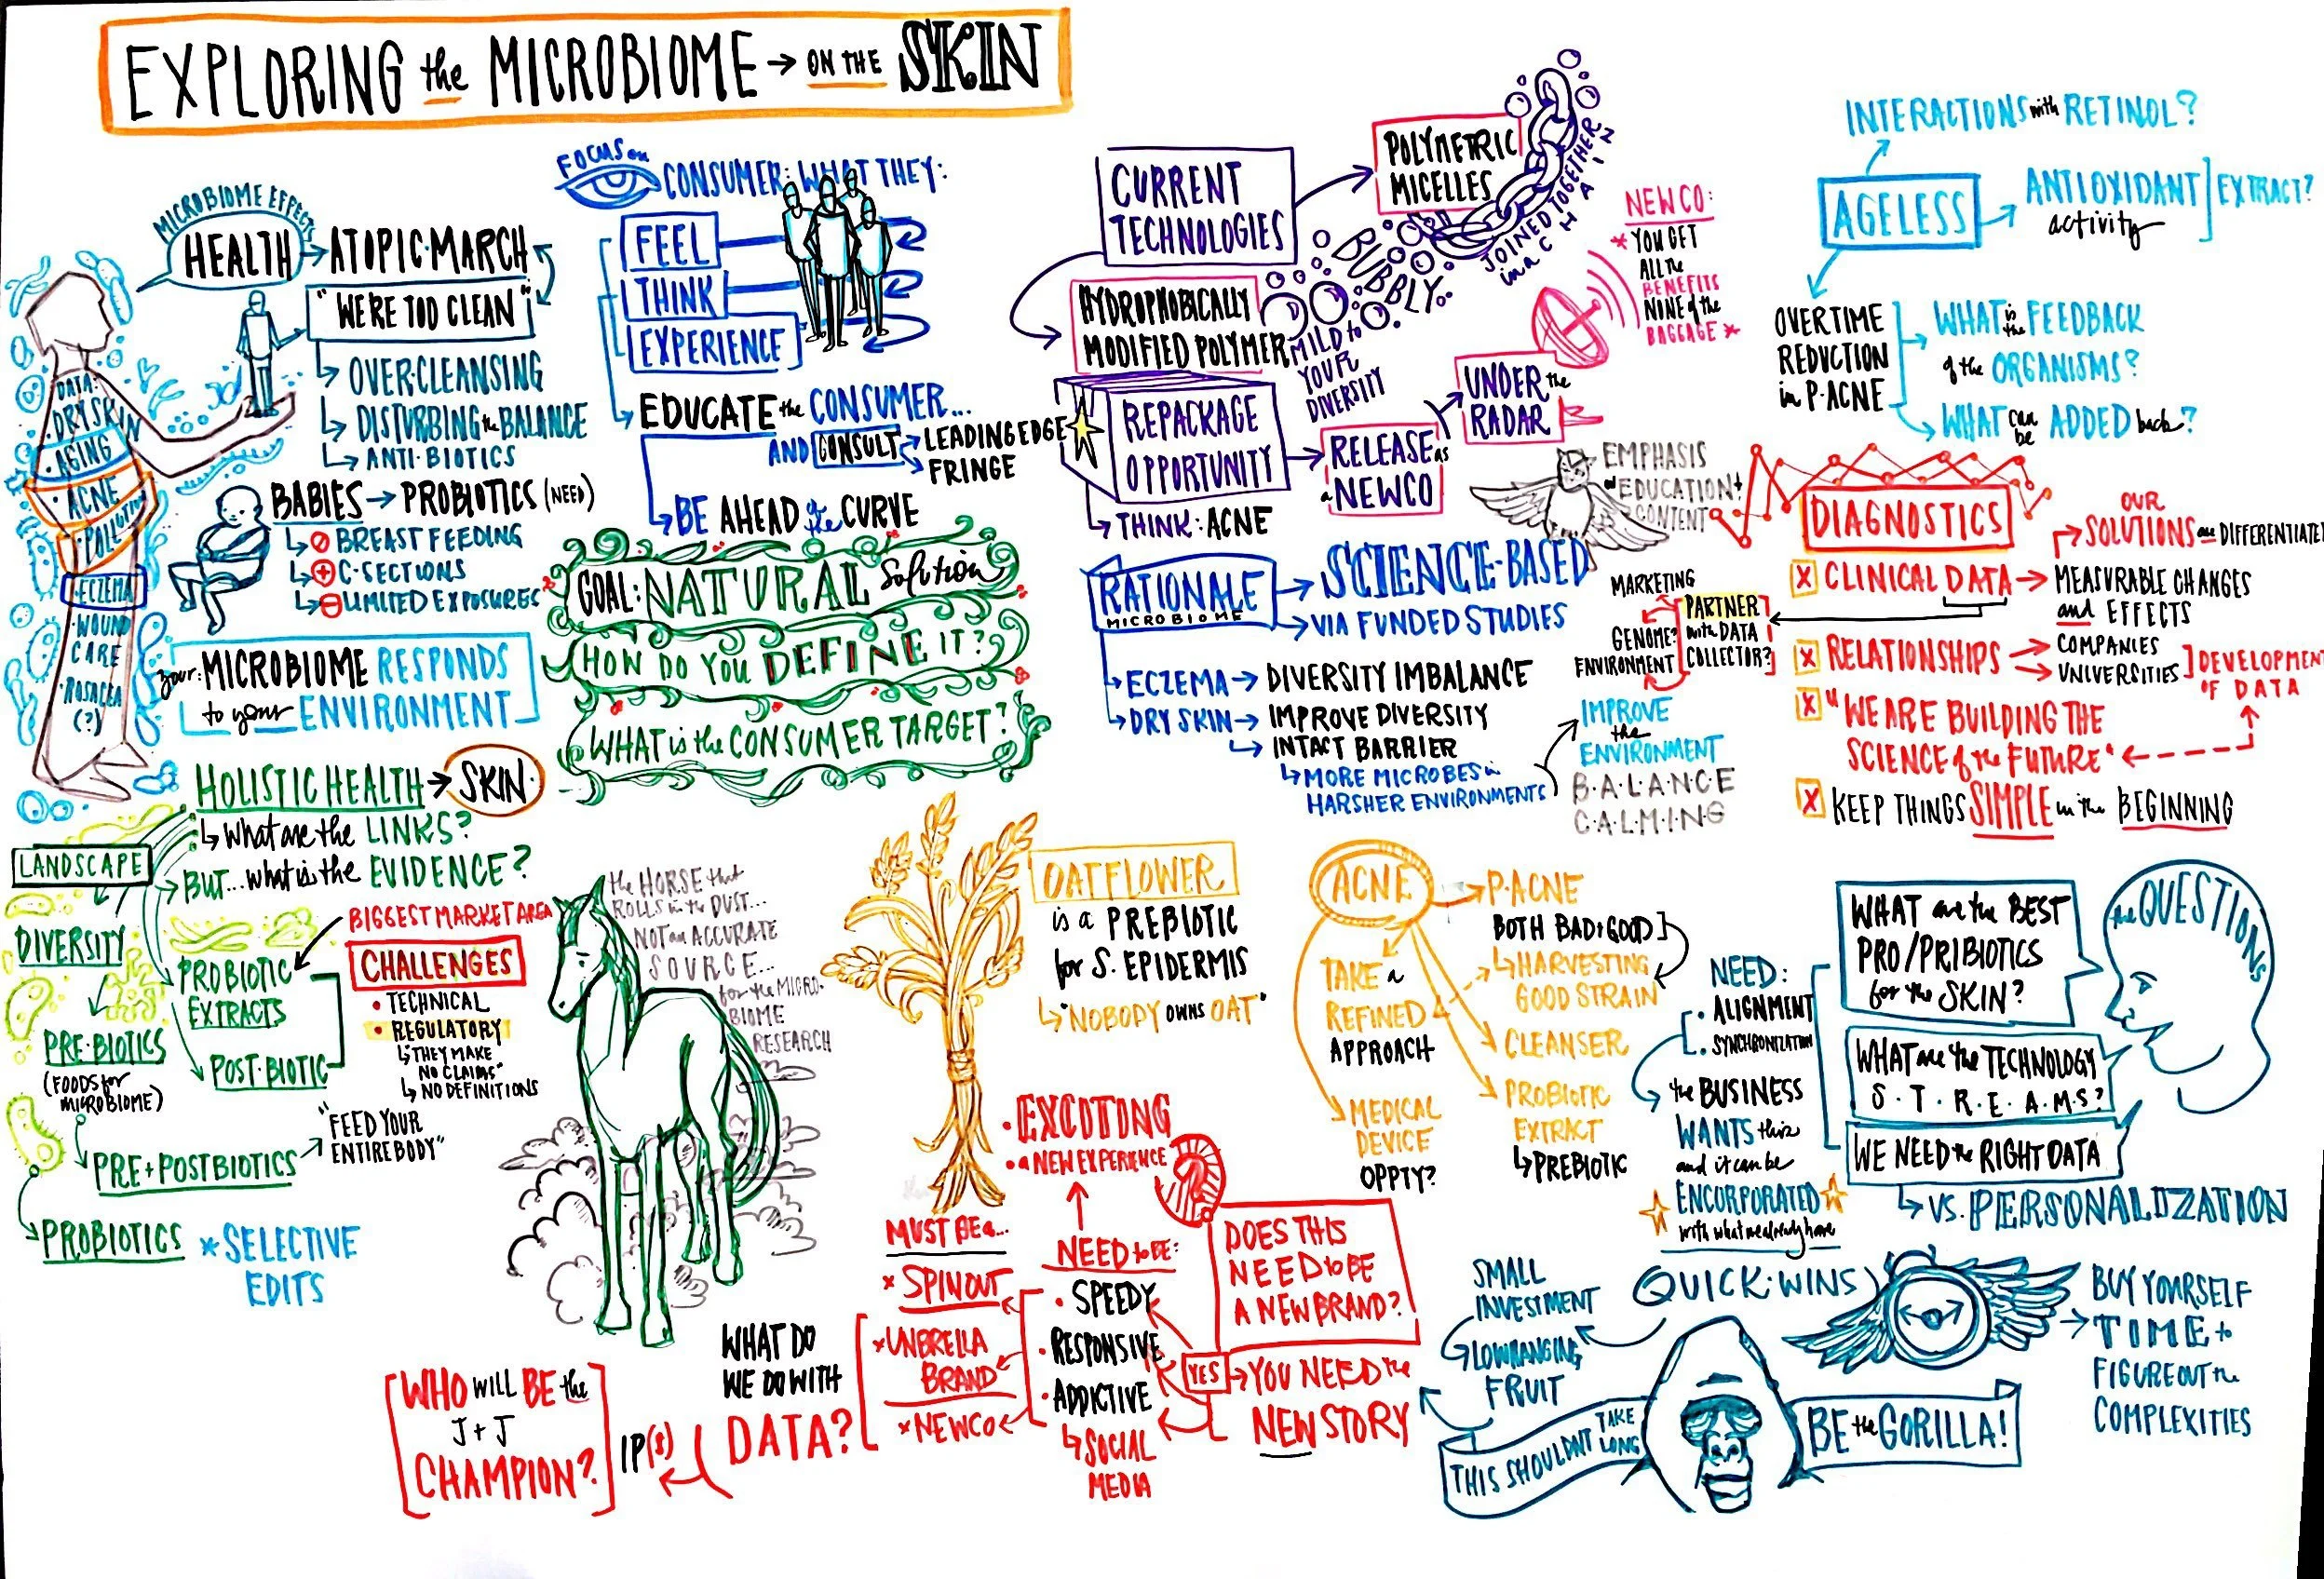 EXPLORING the MICROBIOME → ON THE SKIN
MICROBIOME EFFECTS
HEALTH → ATOPIC·MARCH
"WE'RE TOO CLEAN"
OVER·CLEANSING
DISTURBING the BALANCE
ANTI·BIOTICS
DATA:
·DRY SKIN
·AGING
·ACNE
·POLLUTION
·ECZEMA
·WOUND
CARE
·ROSACEA
(?)
BABIES → PROBIOTICS (NEED)
BREAST FEEDING
C-SECTIONS
LIMITED EXPOSURES
your: MICROBIOME RESPONDS
to your ENVIRONMENT
FOCUS on
CONSUMER: WHAT THEY:
FEEL
THINK
EXPERIENCE
EDUCATE the CONSUMER...
AND CONSULT → LEADING EDGE
FRINGE
BE AHEAD of the CURVE
GOAL: NATURAL Solution
HOW DO YOU DEFINE IT?
WHAT is the CONSUMER TARGET?
HOLISTIC HEALTH → SKIN
What are the LINKS?
BUT... what is the EVIDENCE?
LANDSCAPE
DIVERSITY
PRE·BIOTICS
(FOODS for
MICROBIOME)
PROBIOTIC
EXTRACTS
POST·BIOTIC
BIGGEST MARKET AREA
CHALLENGES
• TECHNICAL
• REGULATORY
"THEY MAKE
NO CLAIMS"
NO DEFINITIONS
PRE + POSTBIOTICS
"FEED YOUR
ENTIRE BODY"
PROBIOTICS * SELECTIVE
EDITS
the HORSE that
ROLLS in the DUST...
NOT an ACCURATE
SOURCE...
for the MICRO-
BIOME
RESEARCH
CURRENT
TECHNOLOGIES
POLYMETRIC
MICELLES
JOINED TOGETHER
in a CHAIN
BUBBLY.
HYDROPHOBICALLY
MODIFIED POLYMER
MILD to
YOUR
DIVERSITY
REPACKAGE
OPPORTUNITY
THINK: ACNE
RELEASE as
a NEWCO
UNDER the
RADAR
NEWCO:
* YOU GET
ALL the
BENEFITS
NONE of the
BAGGAGE *
EMPHASIS
on EDUCATION +
CONTENT
RATIONALE
MICROBIOME
SCIENCE-BASED
VIA FUNDED STUDIES
ECZEMA → DIVERSITY IMBALANCE
DRY SKIN → IMPROVE DIVERSITY
INTACT BARRIER
MORE MICROBES in
HARSHER ENVIRONMENTS
IMPROVE
the
ENVIRONMENT
B·A·L·A·N·C·E
C·A·L·M·I·N·G
INTERACTIONS with RETINOL?
AGELESS
ANTIOXIDANT
activity
EXTRACT?
OVERTIME
REDUCTION
in P·ACNE
WHAT is the FEEDBACK
of the ORGANISMS?
WHAT can be ADDED back?
DIAGNOSTICS
OUR
SOLUTIONS are DIFFERENTIATED
X CLINICAL DATA → MEASURABLE CHANGES
and EFFECTS
MARKETING
GENOME?
ENVIRONMENT
PARTNER
with DATA
COLLECTOR?
X RELATIONSHIPS → COMPANIES
UNIVERSITIES
DEVELOPMENT
OF DATA
X "WE ARE BUILDING THE
SCIENCE of the FUTURE"
X KEEP THINGS SIMPLE in the BEGINNING
OATFLOWER
is a PREBIOTIC
for S. EPIDERMIS
"NOBODY OWNS OAT"
ACNE
P·ACNE
BOTH BAD + GOOD
HARVESTING
GOOD STRAIN
TAKE a
REFINED
APPROACH
CLEANSER
PROBIOTIC
EXTRACT
PREBIOTIC
MEDICAL
DEVICE
OPPTY?
NEED:
• ALIGNMENT
• SYNCHRONIZATION
the BUSINESS
WANTS this
and it can be
ENCORPORATED
with what we already have
the QUESTIONS
WHAT are the BEST
PRO/PRIBIOTICS
for the SKIN?
WHAT are the TECHNOLOGY
S·T·R·E·A·M·S?
WE NEED the RIGHT DATA
VS. PERSONALIZATION
• EXCITING
• a NEW EXPERIENCE
MUST BE a...
× SPINOUT
× UNBRELLA
BRAND
× NEWCO
NEED to BE:
• SPEEDY
• RESPONSIVE
• ADDICTIVE
SOCIAL
MEDIA
DOES THIS
NEED to BE
A NEW BRAND?
YES → YOU NEED the
NEW STORY
WHAT DO
WE DO WITH
DATA?
IP(s)
WHO WILL BE the
J+J
CHAMPION?
QUICK·WINS
SMALL
INVESTMENT
LOWHANGING
FRUIT
BUY YOURSELF
TIME to
FIGURE OUT the
COMPLEXITIES
THIS SHOULDNT TAKE
LONG
BE the GORILLA!